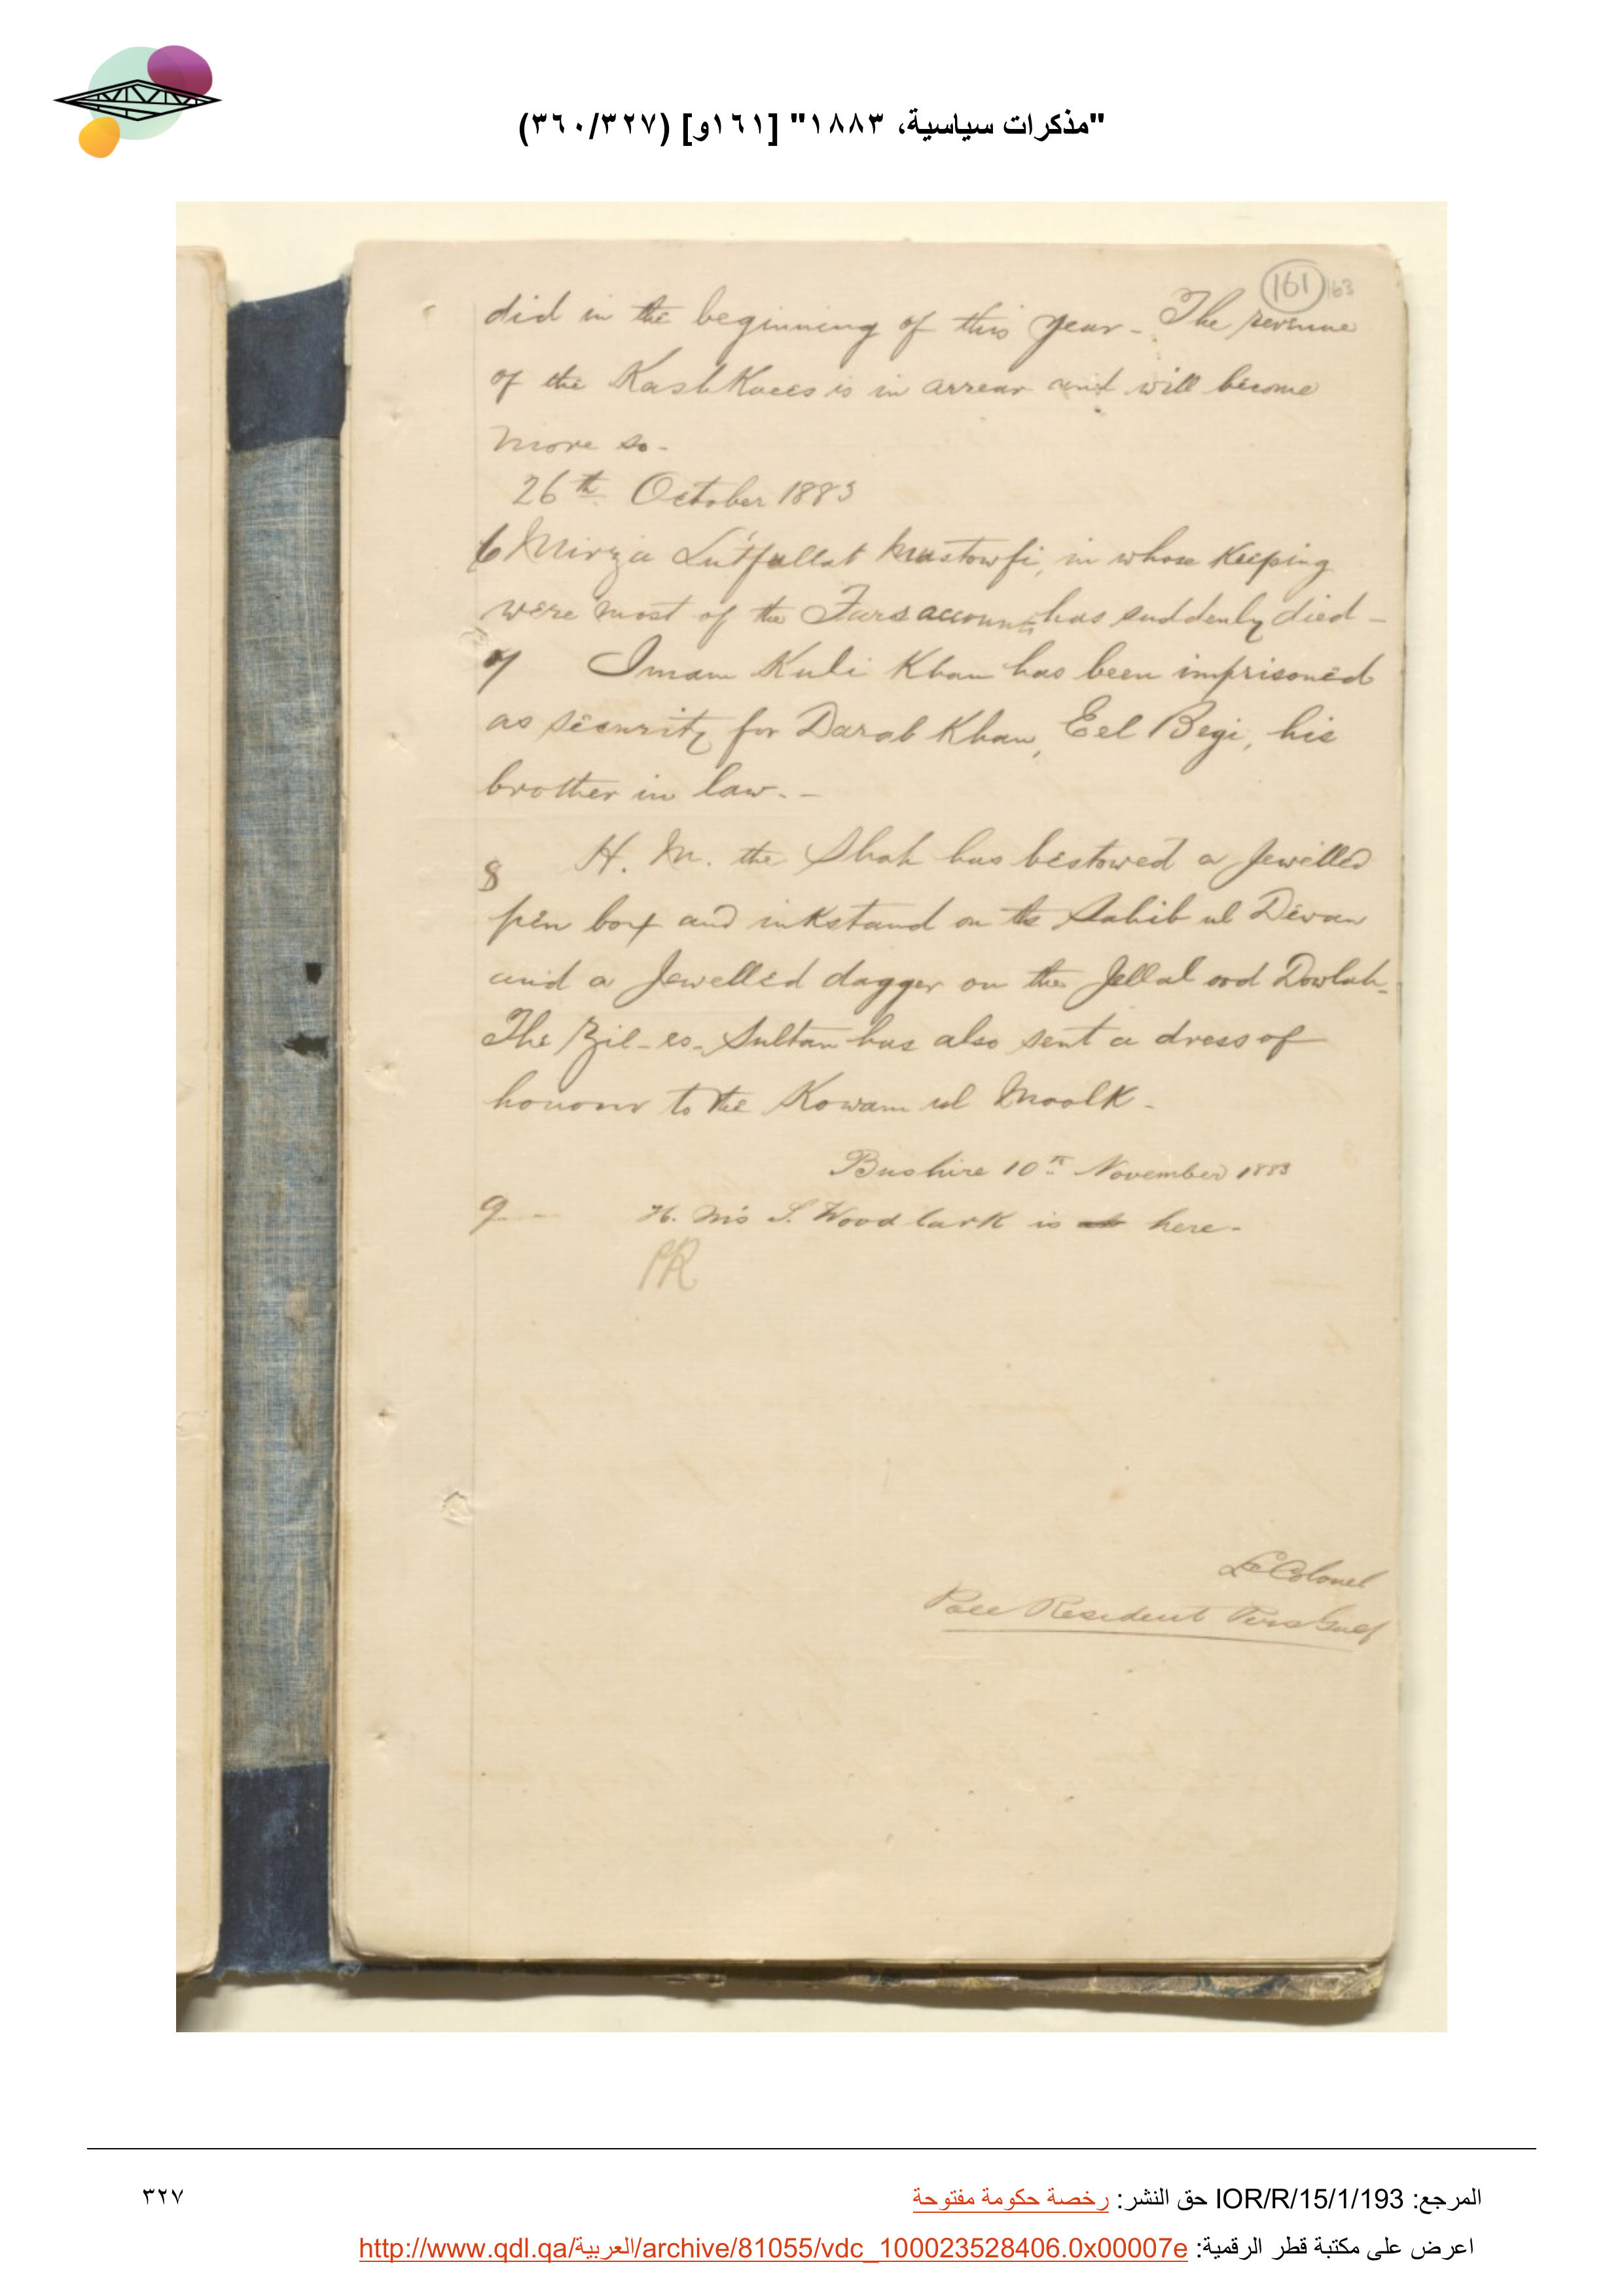 "مذكرات سياسية، ١٨٨٣" [١٦١و] (٣٦٠/٣٢٧)
161 163
did in the beginning of this year - The revenue
of the KashKaees is in arrear and will become
more so -
26th October 1883
6 Mirza Lutfullah Mustowfi, in whose Keeping
were most of the Fars accounts has suddenly died -
7 Imam Kuli Khan has been imprisoned
as security for Darab Khan, Eel Begi, his
brother in law. -
8 H. M. the Shah has bestowed a Jewelled
pen box and inkstand on the Sahib ul Dewan
and a Jewelled dagger on the Jellal ood Dowlah -
The Zil-es-Sultan has also sent a dress of
honour to the Kowam ul Moolk -
Bushire 10th November 1883
9 H. M's S. Woodlark is here -
PR
Lt Colonel
Resident Pers Gulf
المرجع: IOR/R/15/1/193 حق النشر: رخصة حكومة مفتوحة
٣٢٧
اعرض على مكتبة قطر الرقمية: http://www.qdl.qa/العربية/archive/81055/vdc_100023528406.0x00007e